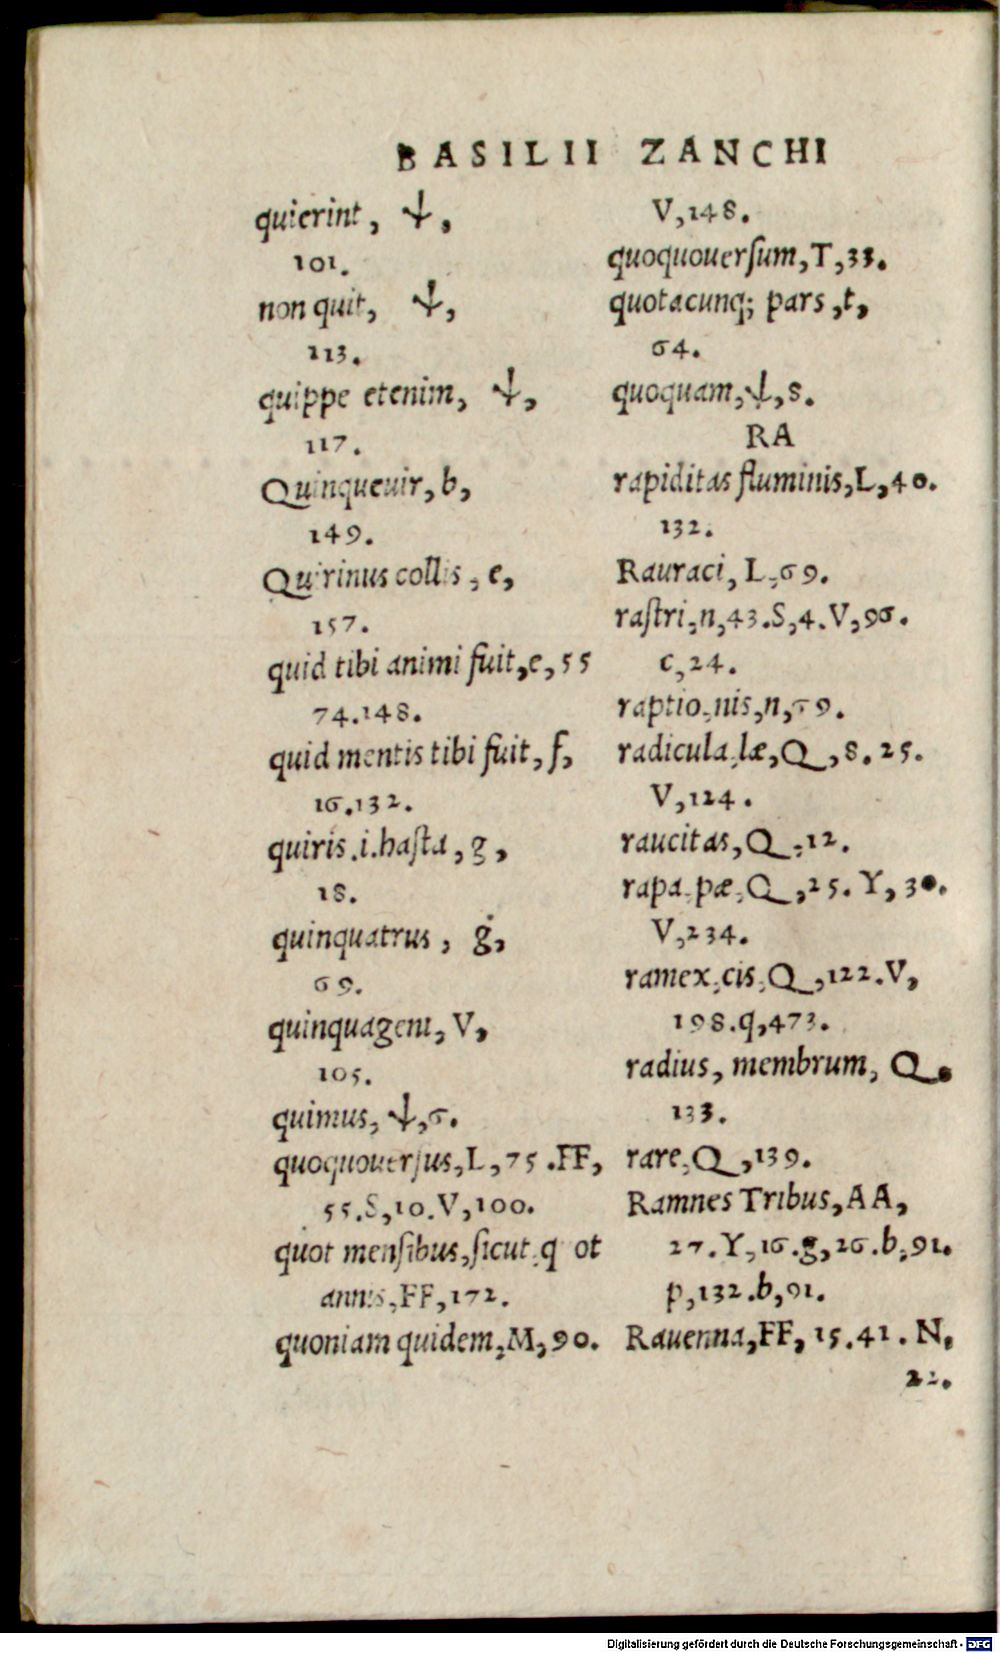 BASILII ZANCHI
quierint, ↓,
101.
non quit, ↓,
113.
quippe etenim, ↓,
117.
Quinqueuir, b,
149.
Quirinus collis, e,
157.
quid tibi animi fuit, e, 55
74.148.
quid mentis tibi fuit, f,
16.132.
quiris.i.hasta, g,
18.
quinquatrus, g,
69.
quinquageni, V,
105.
quimus, ↓,6.
quoquouerſus, L, 75.FF,
55.S,10.V,100.
quot menſibus, ſicut q ot
annis, FF, 172.
quoniam quidem, M, 90.
V,148.
quoquouerſum, T, 33.
quotacunq; pars, t,
64.
quoquam, ↓, 8.
RA
rapiditas fluminis, L, 40.
132.
Rauraci, L, 69.
raſtri, n, 43.S,4.V,96.
c,24.
raptio, nis, n, 59.
radicula.læ, Q, 8.25.
V,124.
raucitas, Q, 12.
rapa.pæ, Q, 25. Y, 30.
V,234.
ramex, cis, Q, 122.V,
198.q,473.
radius, membrum, Q.
133.
rare, Q, 139.
Ramnes Tribus, AA,
27.Y,16.g,26.b,91.
p,132.b,91.
Rauenna, FF, 15.41. N,
22.
Digitalisierung gefördert durch die Deutsche Forschungsgemeinschaft - DFG